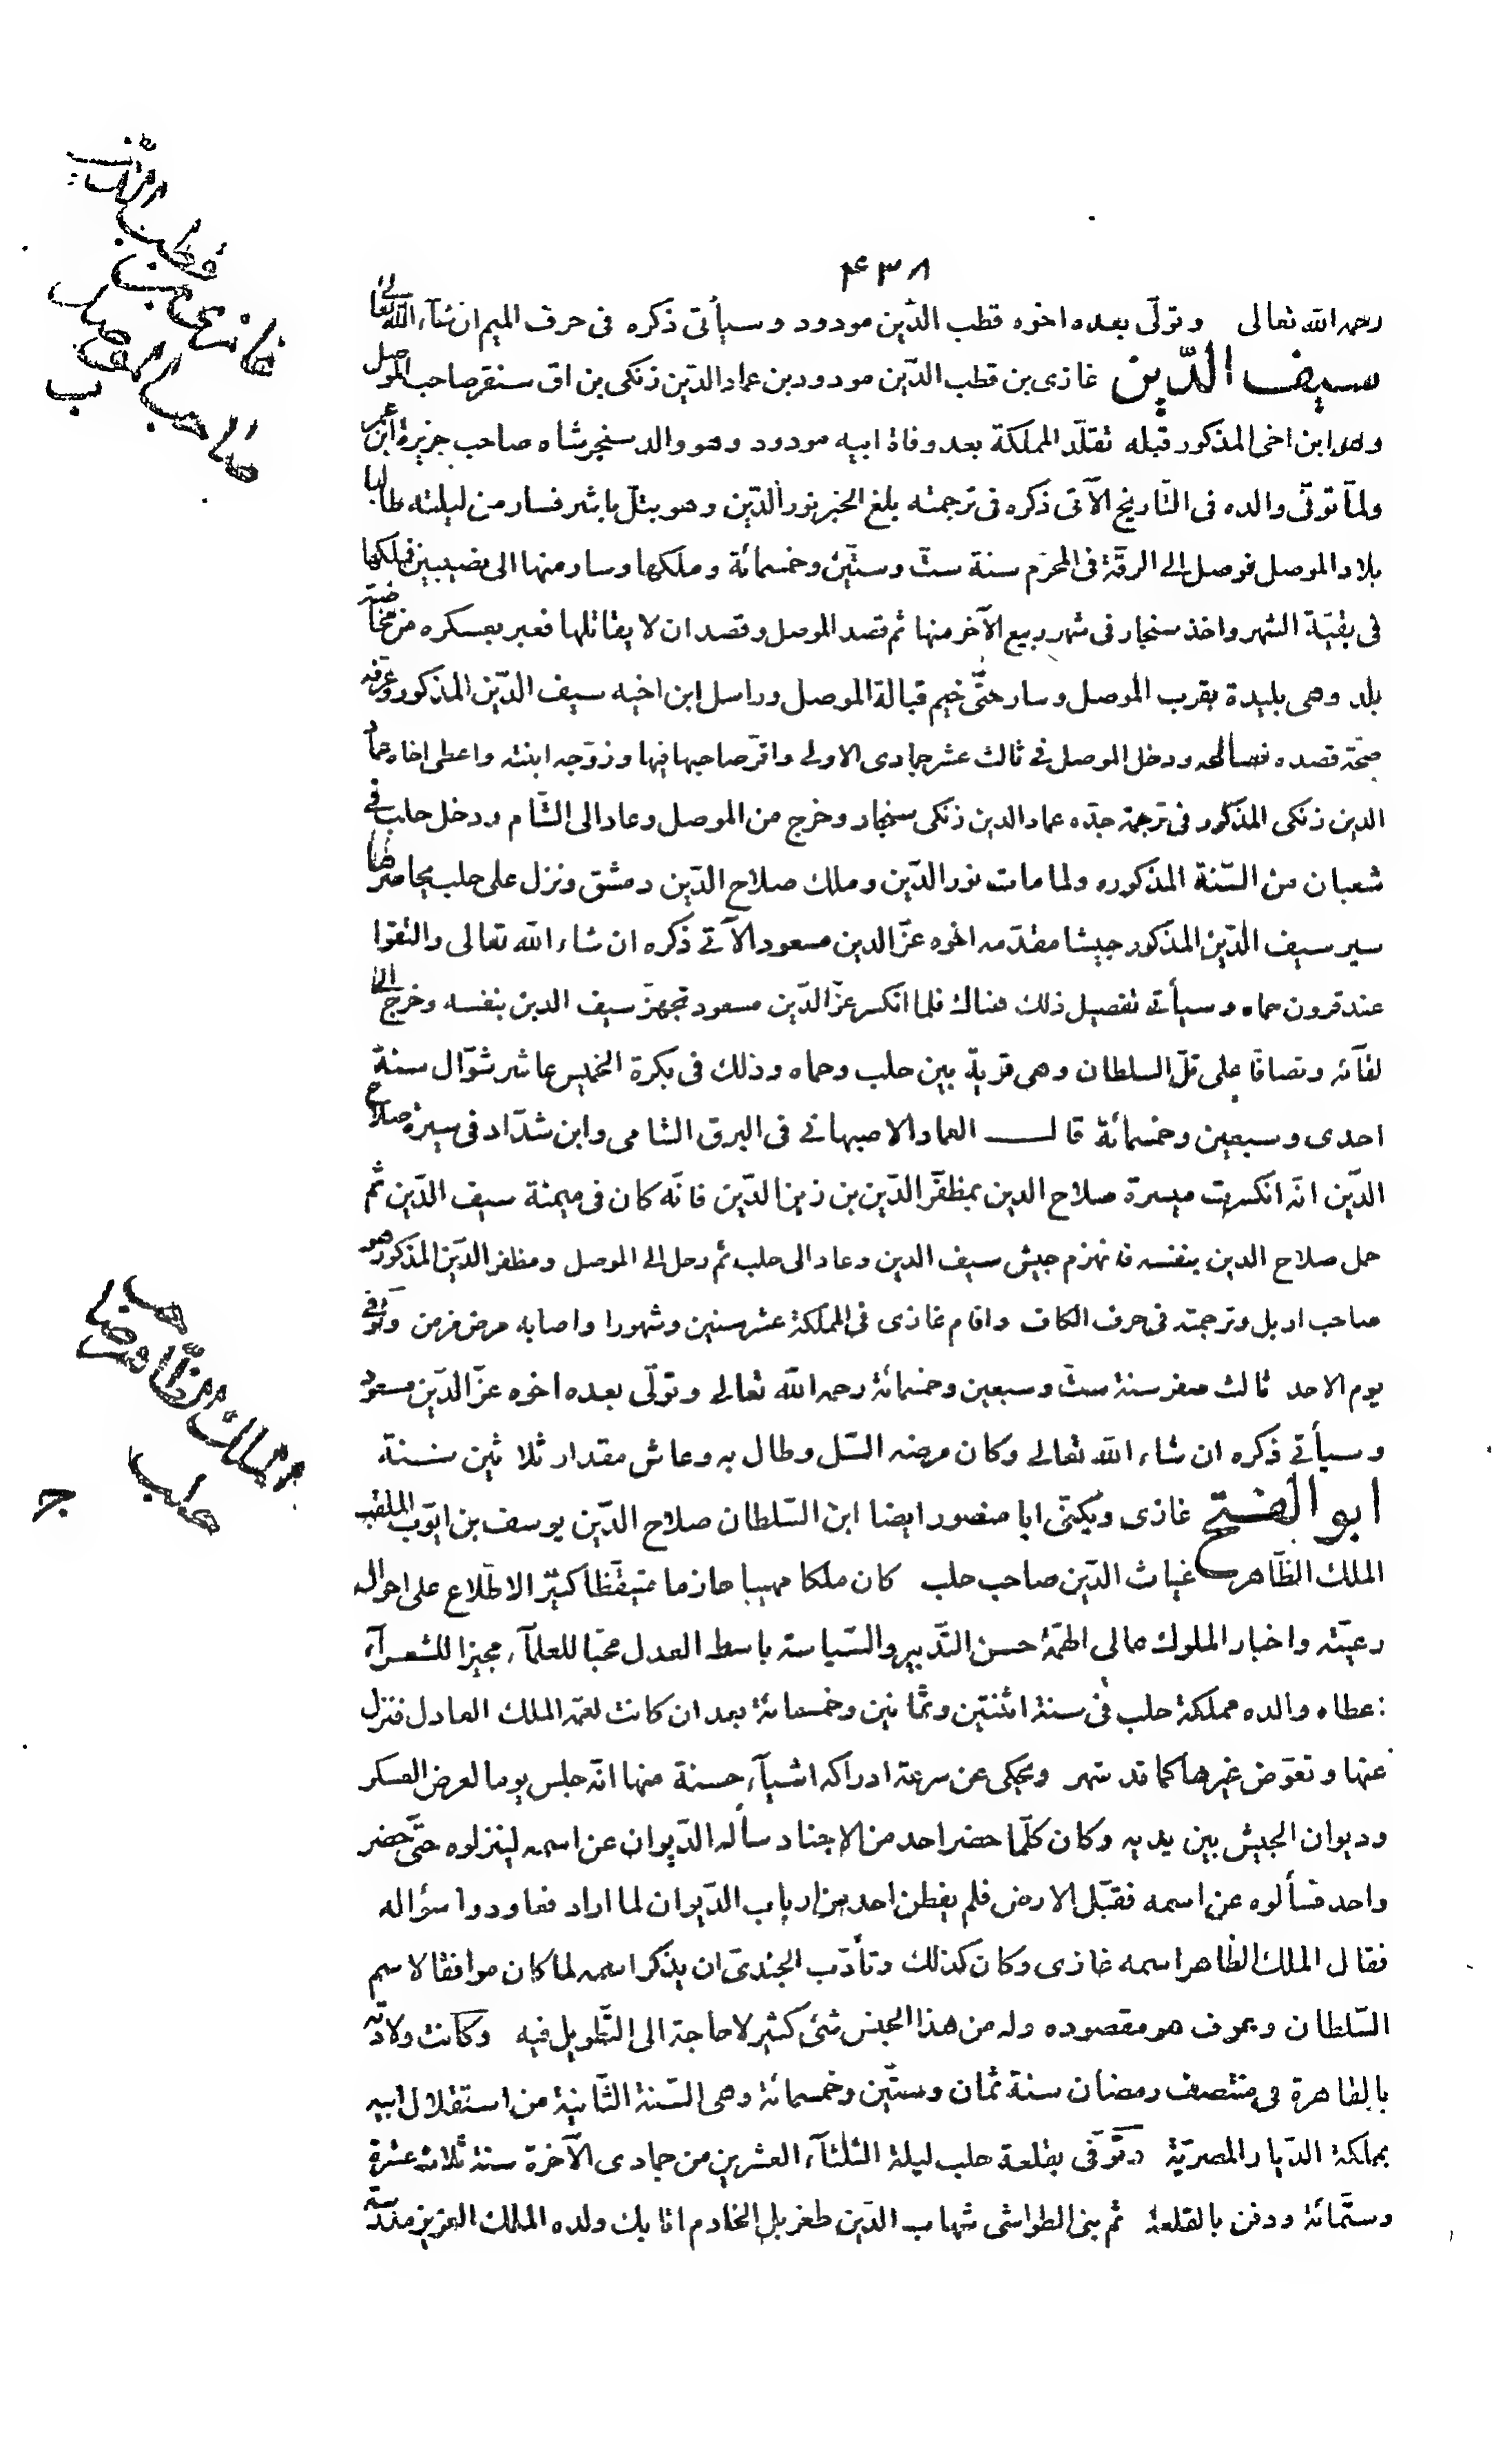 ۴۳۸
رحمه الله تعالى وتولّى بعده اخوه قطب الدّين مودود وسيأتى ذكره فى حرف الميم ان شآء الله تعالى
سيف الدّين غازى بن قطب الدّين مودود بن عماد الدّين زنكى بن اق سنقر صاحب الموصل
وهو ابن اخى المذكور قبله تقلّد المملكة بعد وفاة ابيه مودود وهو والد سنجر شاه صاحب جزيرة ابن عمر
ولمّا توفّى والده فى التّاريخ الآتى ذكره فى ترجمته بلغ الخبر نور الدّين وهو بتلّ باشر فسار من ليلته طالبا
بلاد الموصل فوصل الى الرقّة فى المحرّم سنة ستّ وستّين وخمسمائة وملكها وسار منها الى نصيبين فملكها
فى بقيّة الشهر واخذ سنجار فى شهر ربيع الآخر منها ثم قصد الموصل وقصد ان لا يقاتلها فعبر بعسكره من مخاضة
بلد وهى بليدة بقرب الموصل وسار حتّى خيم قبالة الموصل وراسل ابن اخيه سيف الدّين المذكور وعرّفه
صحّة قصده فصالحه ودخل الموصل فى ثالث عشر جمادى الاولى واقرّ صاحبها فيها وزوّجه ابنته واعطى اخاه عماد
الدين زنكى المذكور فى ترجمة جدّه عماد الدين زنكى سنجار وخرج من الموصل وعاد الى الشّام ودخل حلب فى
شعبان من السّنة المذكوره ولما مات نور الدّين وملك صلاح الدّين دمشق ونزل على حلب يحاصرها
سير سيف الدّين المذكور جيشا مقدّمه اخوه عزّ الدين مسعود الآتى ذكره ان شاء الله تعالى والتقوا
عند قرون حماه وسيأتى تفصيل ذلك هناك فلما انكسر عزّ الدّين مسعود تجهزّ سيف الدين بنفسه وخرج الى
لقآئه وتصافّا على تلّ السلطان وهى قرية بين حلب وحماه وذلك فى بكرة الخميس عاشر شوّال سنة
احدى وسبعين وخمسمائة قال العماد الاصبهانى فى البرق الشامى وابن شدّاد فى سيرة صلاح
الدّين انّه انكسرت ميسرة صلاح الدين بمظفّر الدّين بن زين الدّين فانّه كان فى ميمنة سيف الدّين ثم
حمل صلاح الدين بنفسه فانهزم جيش سيف الدين وعاد الى حلب ثم رحل الى الموصل ومظفر الدّين المذكور هو
صاحب اربل وترجمته فى حرف الكاف واقام غازى فى المملكة عشر سنين وشهورا واصابه مرض مزمن وتوفّى
يوم الاحد ثالث صفر سنة ستّ وسبعين وخمسمائة رحمه الله تعالى وتولّى بعده اخوه عزّ الدّين مسعود
وسيأتى ذكره ان شاء الله تعالى وكان مرضه السّل وطال به وعاش مقدار ثلاثين سنة
ابو الفتح غازى ويكنّى ابا منصور ايضا ابن السّلطان صلاح الدّين يوسف بن ايّوب الملقب
الملك الظّاهر غياث الدّين صاحب حلب كان ملكا مهيبا حازما متيقّظا كثير الاطّلاع على احوال
رعيّته واخبار الملوك عالى الهمّة حسن التّدبير والسّياسة باسط العدل محبّا للعلمآء مجيزا للشعرآء
اعطاه والده مملكة حلب فى سنة اثنتين وثمانين وخمسمائة بعد ان كانت لعمّه الملك العادل فنزل
عنها وتعوّض غيرها كما قد شهر ويحكى عن سرعة ادراكه اشيآء حسنة منها انّه جلس يوما لعرض العسكر
وديوان الجيش بين يديه وكان كلّما حضر احد من الاجناد سأله الدّيوان عن اسمه لينزلوه حتّى حضر
واحد فسألوه عن اسمه فقبّل الارض فلم يفطن احد من ارباب الدّيوان لما اراد فعاودوا سؤاله
فقال الملك الظاهر اسمه غازى وكان كذلك وتأدّب الجندىّ ان يذكر اسمه لما كان موافقا لاسم
السّلطان وعرف هو مقصوده وله من هذا الجنس شئ كثير لا حاجة الى التّطويل فيه وكانت ولادته
بالقاهرة فى منتصف رمضان سنة ثمان وستّين وخمسمائة وهى السّنة الثّانية من استقلال ابيه
بمملكة الدّيار المصريّة وتوفّى بقلعة حلب ليلة الثلثآء العشرين من جمادى الآخرة سنة ثلاثة عشرة
وستّمائة ودفن بالقلعة ثم بنى الطواشى شهاب الدّين طغربل الخادم اتابك ولده الملك العزيز مدرسة
غازى بن
قطب الدّين
صاحب الموصل
ب
الملك الظّاهر
صاحب
حلب
ج